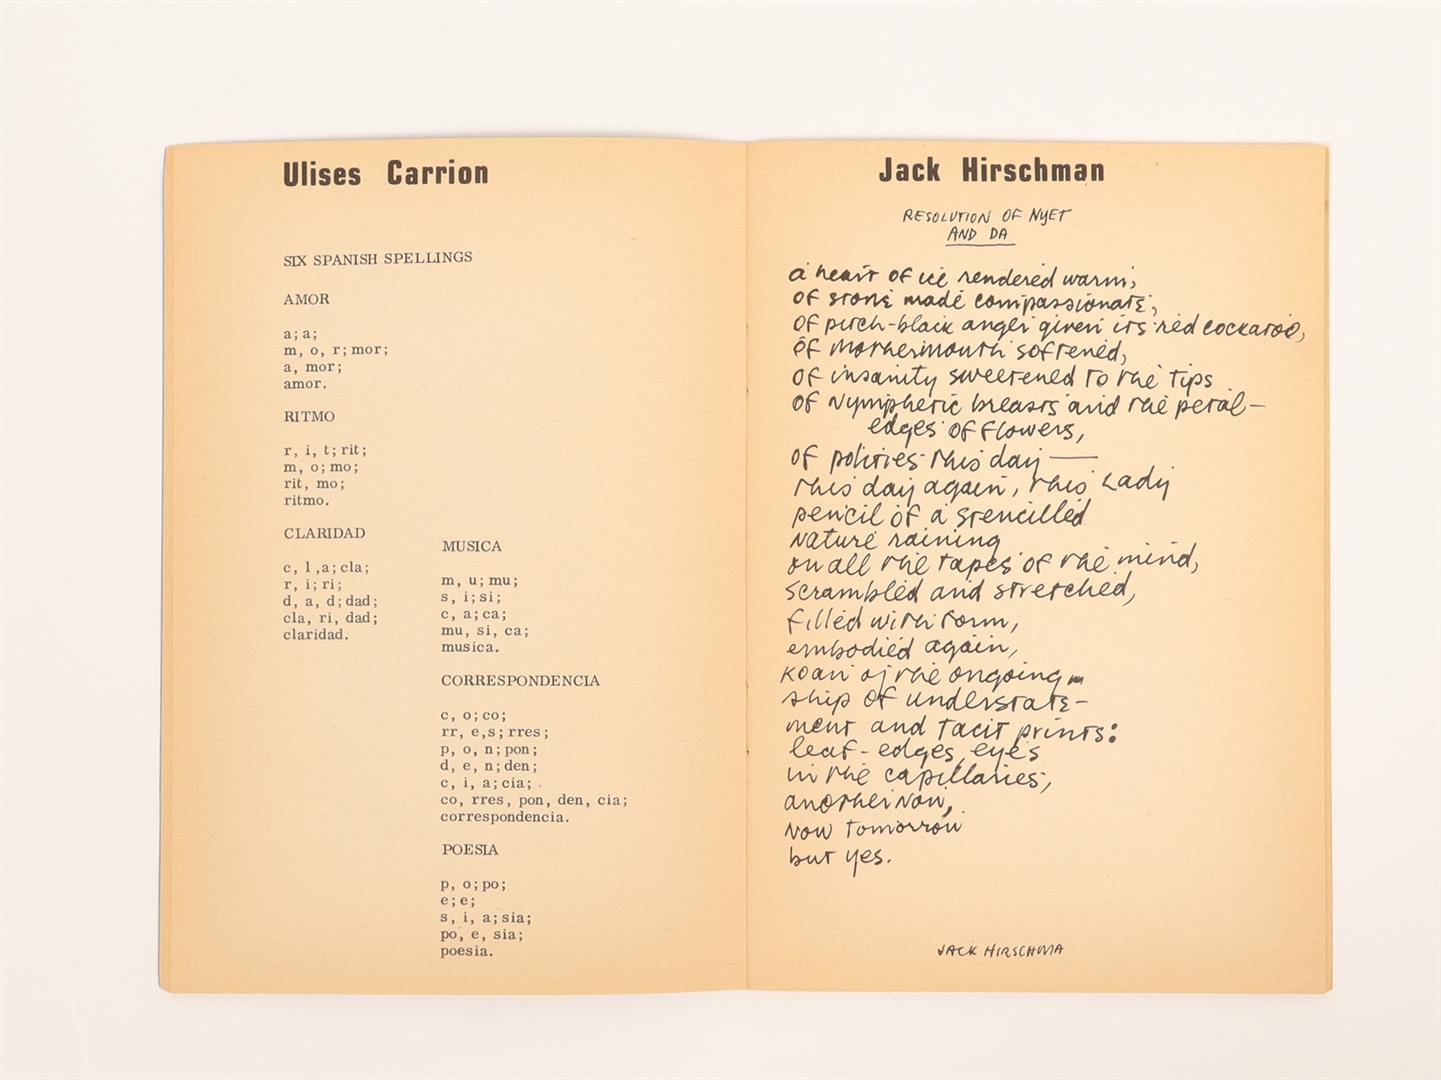 Ulises Carrion
SIX SPANISH SPELLINGS
AMOR
a; a;
m, o, r; mor;
a, mor;
amor.
RITMO
r, i, t; rit;
m, o; mo;
rit, mo;
ritmo.
CLARIDAD
c, l ,a; cla;
r, i; ri;
d, a, d; dad;
cla, ri, dad;
claridad.
MUSICA
m, u; mu;
s, i; si;
c, a; ca;
mu, si, ca;
musica.
CORRESPONDENCIA
c, o; co;
rr, e,s; rres;
p, o, n; pon;
d, e, n; den;
c, i, a; cia;
co, rres, pon, den, cia;
correspondencia.
POESIA
p, o; po;
e; e;
s, i, a; sia;
po, e, sia;
poesia.
Jack Hirschman
RESOLUTION OF NYET
AND DA
a heart of ice rendered warm,
of stone made compassionate,
of pitch-black anger given its red cockatoo,
of mothermouth softened,
of insanity sweetened to the tips
of nympheric breasts and the petal-
edges of flowers,
of politics this day —
this day again, this Lady
pencil of a stencilled
nature raining
on all the tapes of the mind,
scrambled and stretched,
filled with form,
embodied again,
koan of the ongoing
ship of understate-
ment and tacit prints:
leaf-edges, eyes
in the capillaries,
another now,
now tomorrow
but yes.
JACK HIRSCHMA